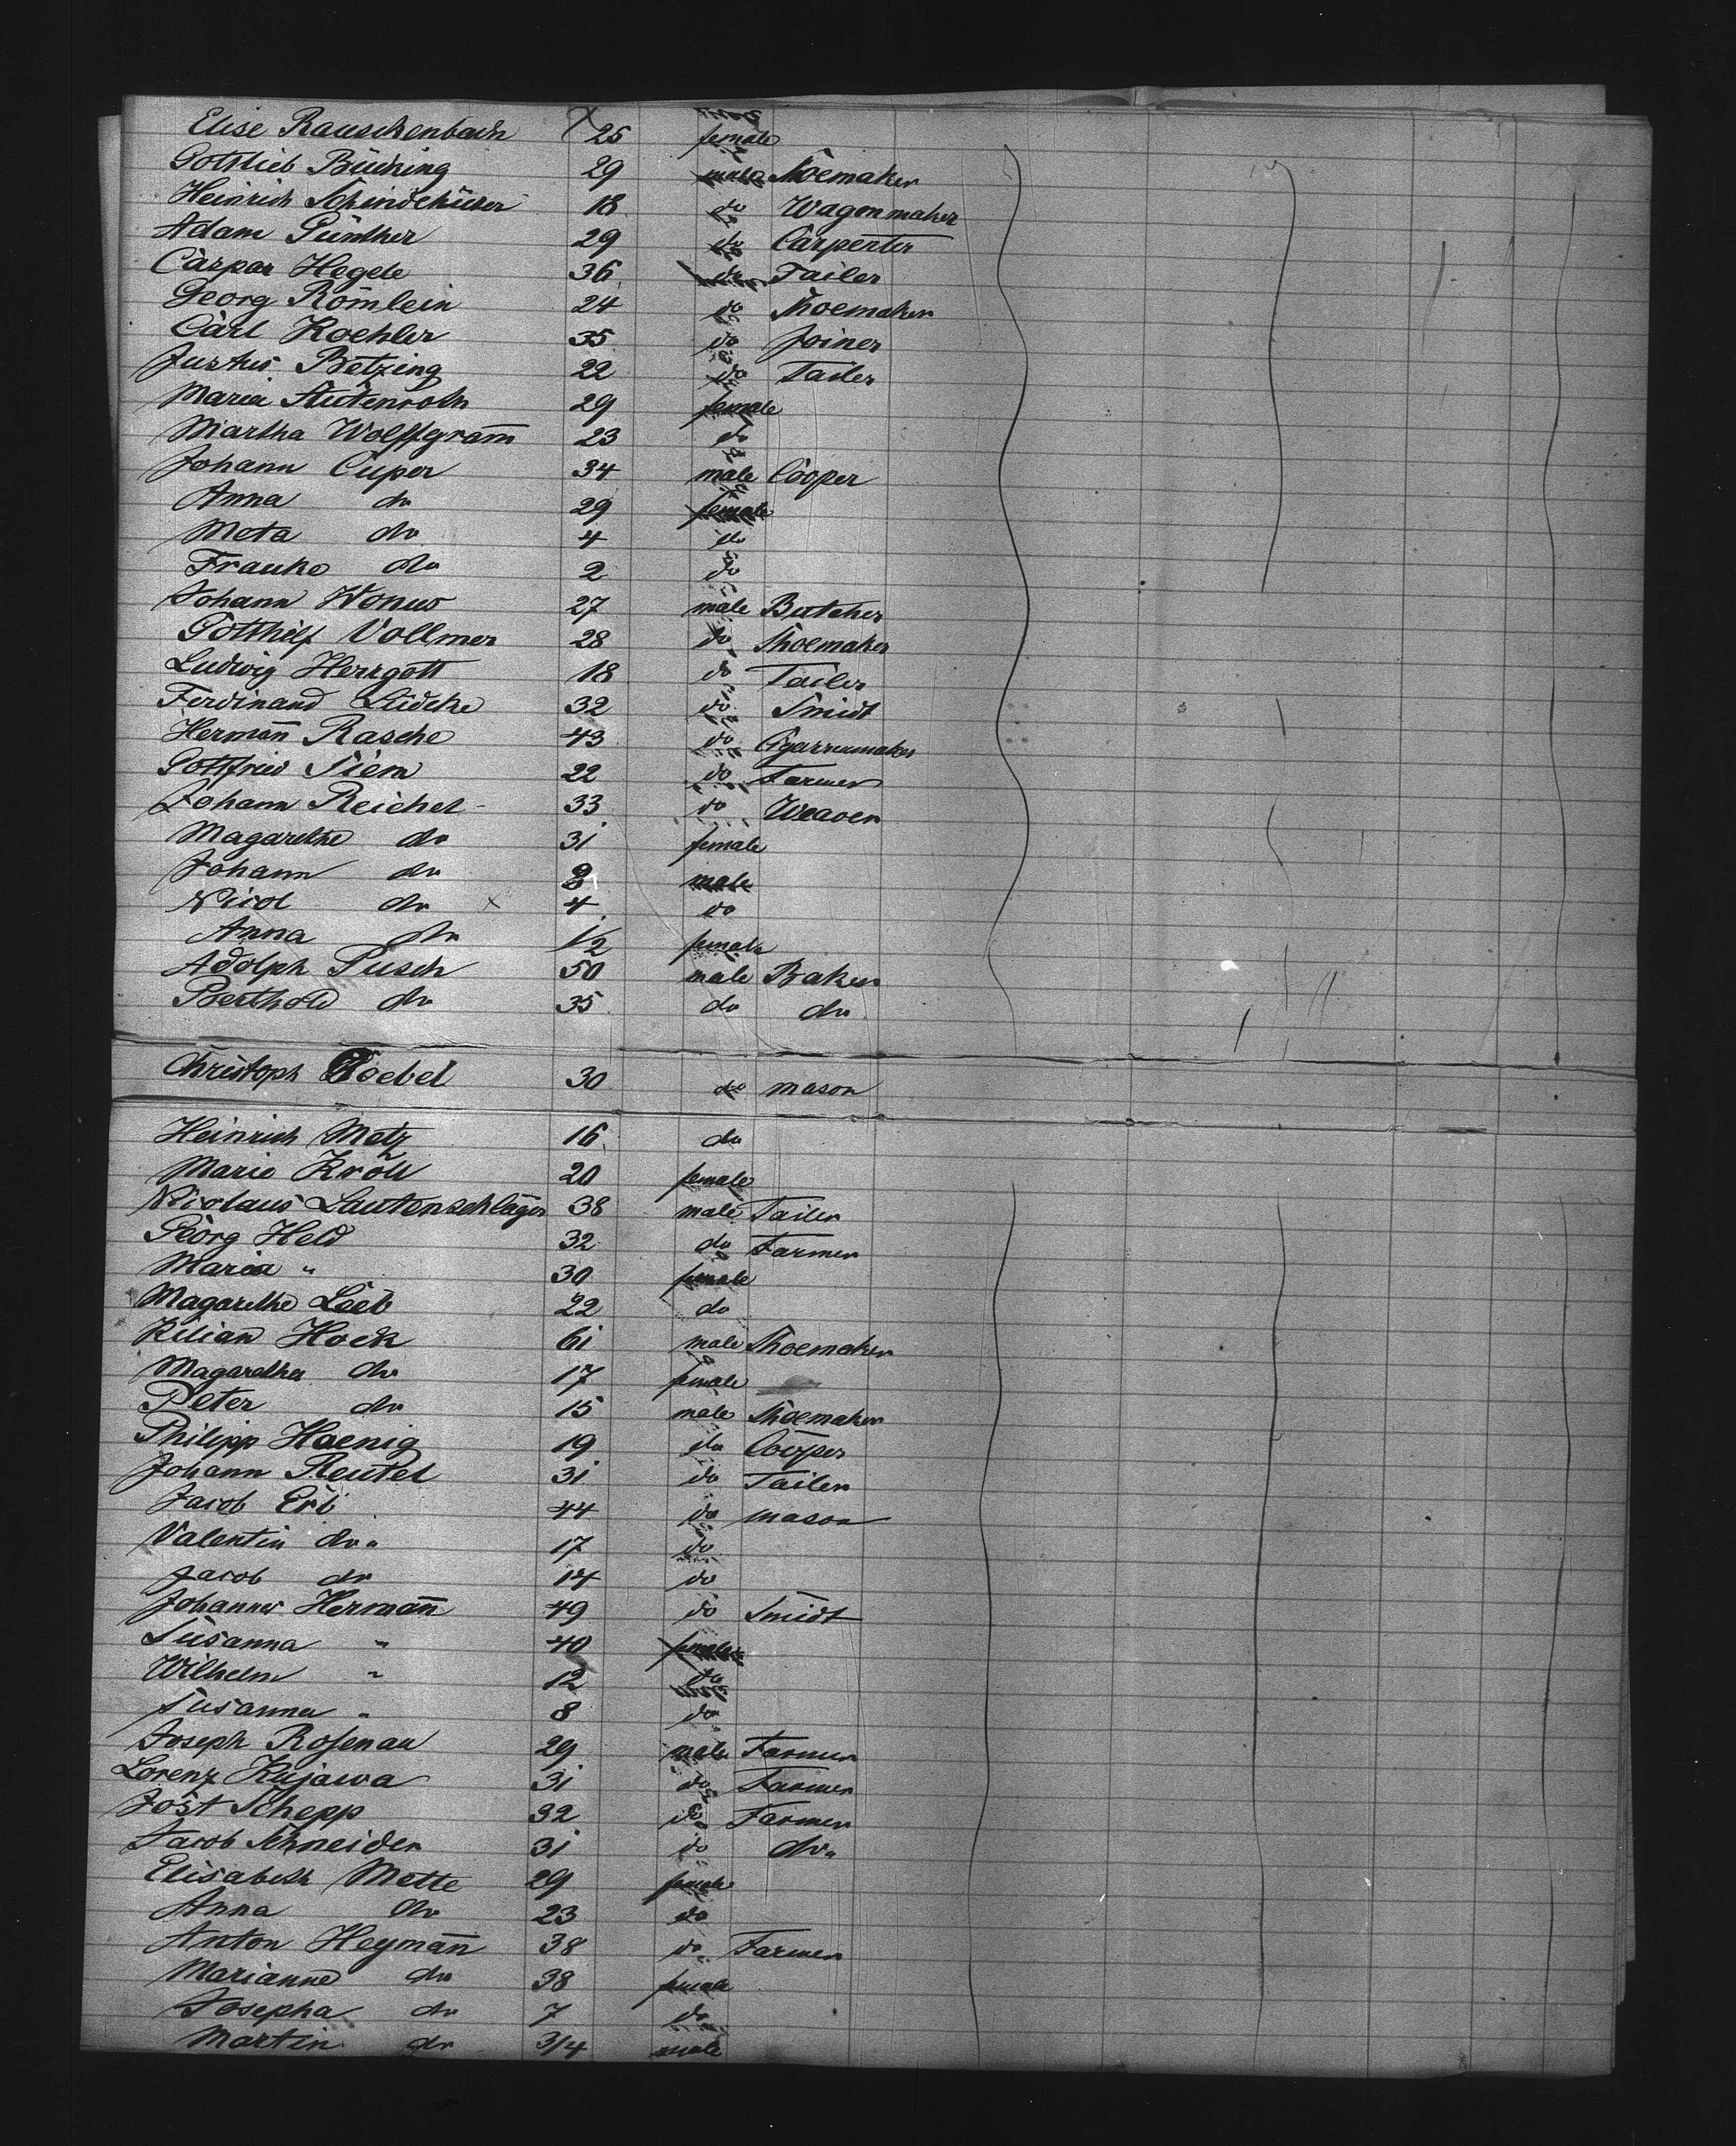 Elise Rauschenbach 25 female
Gottlieb Bücking 29 male Shoemaker
Heinrich Schindehütter 18 do Wagenmaker
Adam Günther 29 do Carpenter
Caspar Hegele 36 do Tailer
Georg Römlein 24 do Shoemaker
Carl Koehler 35 do Joiner
Justus Betzing 22 do Tailer
Maria Stutenroth 29 female
Martha Wolffgram̄ 23 do
Johann Cuper 34 male Cooper
Anna do 29 female
Meta do 4 do
Frauke do 2 do
Johann Wonus 27 male Butcher
Gotthilf Vollmer 28 do Shoemaker
Ludwig Herrgott 18 do Tailer
Ferdinand Lüdcke 32 do Smidt
Herman̄ Rasche 43 do
Gottfried Siem 22 do Farmer
Johann Reichel 33 do Weaver
Magarethe do 31 female
Johann do 8 male
Nicol do 4 do
Anna do 1/2 female
Adolph Pusch 50 male Baker
Berthold do 35 do do
Christoph Goebel 30 do mason
Heinrich Metz 16 do
Marie Kroll 20 female
Nicolaus Lautenschläger 38 male Tailer
Georg Held 32 do Farmer
Maria " 30 female
Magarethe Loeb 22 do
Kilian Hock 61 male Shoemaker
Magaretha do 17 female
Peter do 15 male Shoemaker
Philipp Haenig 19 do Cooper
Johann Reutel 31 do Tailer
Jacob Erb 44 do mason
Valentin do " 17 do
Jacob do 14 do
Johannes Herman̄ 49 do Smidt
Susanna " 40 female
Wilhelm " 12 do
Susanna " 8 do
Joseph Rosenau 29 male Farmer
Lorenz Kujawa 31 do Farmer
Jost Schepp 32 do Farmer
Jacob Schneider 31 do do "
Elisabeth Mette 29 female
Anna do 23 do
Anton Heyman̄ 38 do Farmer
Marianne do 38 female
Josepha do 7 do
Martin do 3/4 male